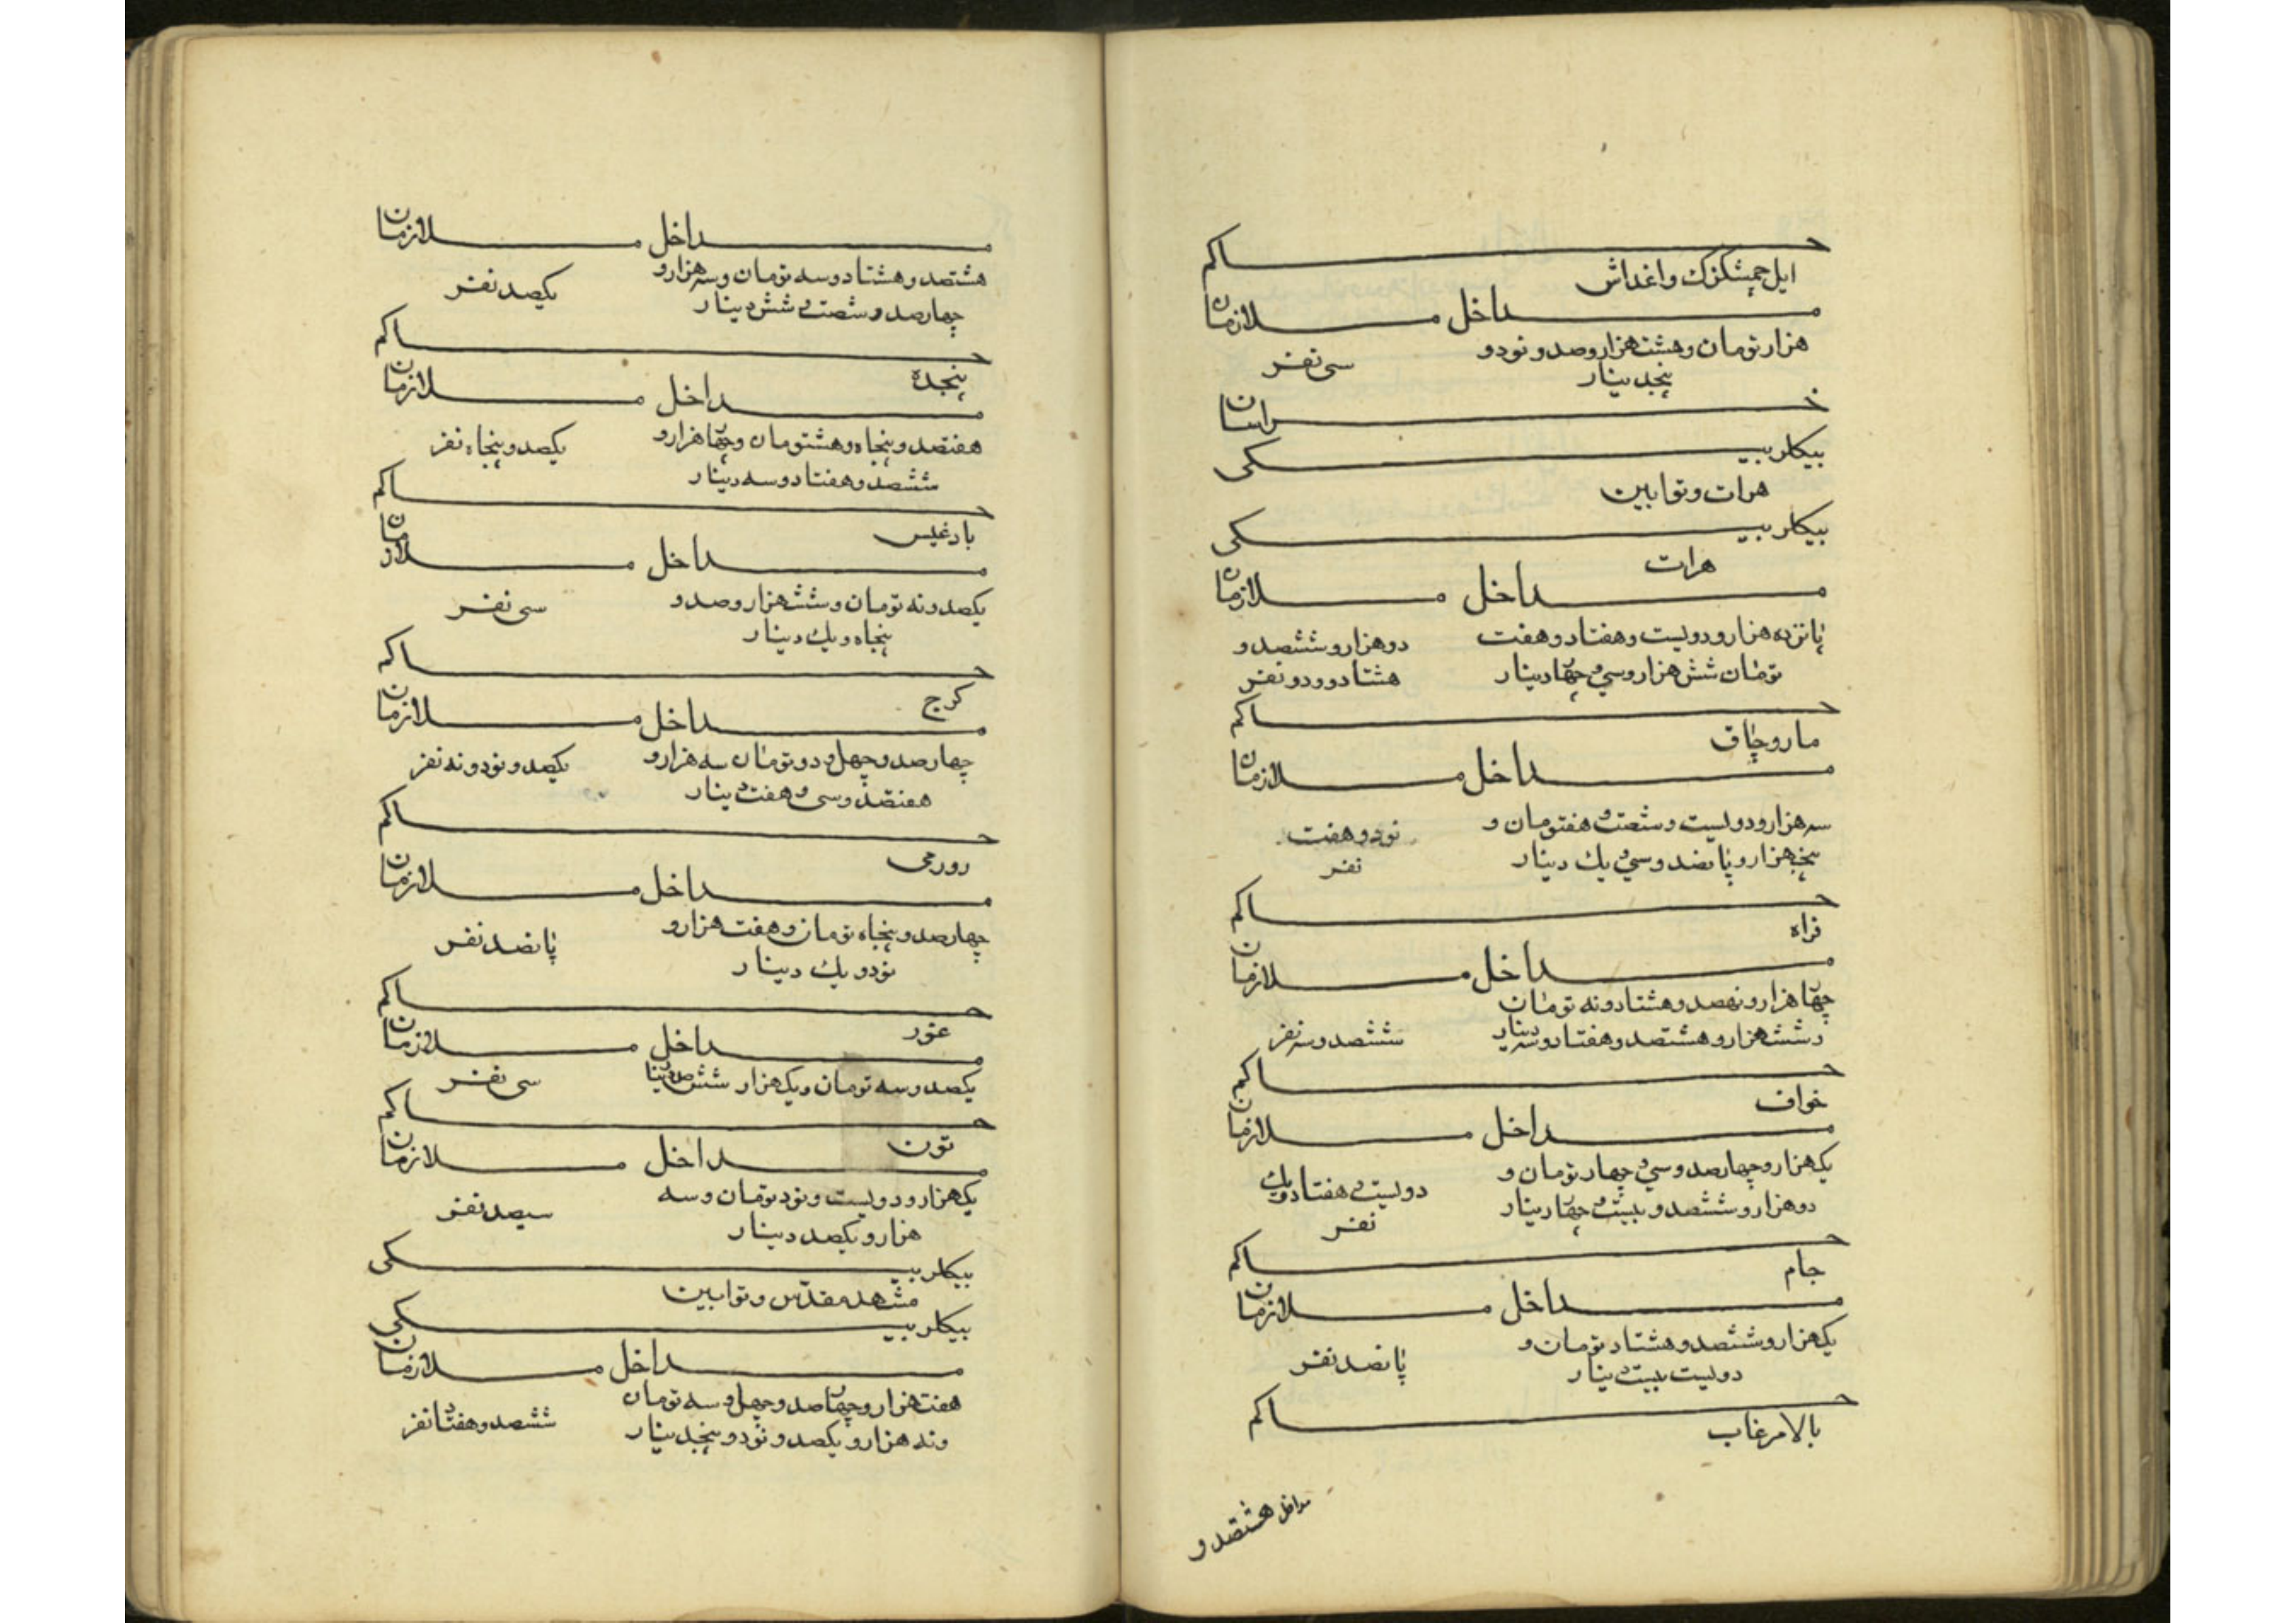 حاکم
ایل چمشکزک و اغداش
مداخل ملازمان
هزار تومان و هشت هزار و صد و نود و
سی نفر
پنجدینار
خراسان
بیکلربیکی
هرات و توابین
بیکلربیکی
هرات
مداخل ملازمان
پانزده هزار و دویست و هفتاد و هفت
دو هزار و ششصد و
تومان شش هزار و سی و چهار دینار
هشتاد و دو نفر
حاکم
ماروچاق
مداخل ملازمان
سه هزار و دویست و شصت و هفتومان و
نود و هفت
پنجهزار و پانصد و سی و یك دینار
نفر
حاکم
فراه
مداخل ملازمان
چهار هزار و نهصد و هشتاد و نه تومان
و شش هزار و هشتصد و هفتاد و سه دینار
ششصد و سه نفر
حاکم
خواف
مداخل ملازمان
یکهزار و چهار صد و سی و چهار تومان و
دویست و هفتاد و یك
دو هزار و ششصد و بیست و چهار دینار
نفر
حاکم
جام
مداخل ملازمان
یکهزار و ششصد و هشتاد تومان و
پانصد نفر
دویست بیست دینار
حاکم
بالامرغاب
مداخل هشتصد و
مداخل ملازمان
هشتصد و هشتاد و سه تومان و سه هزار و
یکصد نفر
چهار صد و شصت و شش دینار
حاکم
پنجده
مداخل ملازمان
هفتصد و پنجاه و هشتومان و چهار هزار و
یکصد و پنجاه نفر
ششصد و هفتاد و سه دینار
حاکم
بادغیس
مداخل ملازمان
یکصد و نه تومان و شش هزار و صد و
سی نفر
پنجاه و یك دینار
حاکم
کرج
مداخل ملازمان
چهار صد و چهل و دو تومان سه هزار و
یکصد و نود و نه نفر
هفتصد و سی و هفت دینار
حاکم
دورمی
مداخل ملازمان
چهار صد و پنجاه تومان و هفت هزار و
پانصد نفر
نود و یك دینار
حاکم
غور
مداخل ملازمان
یکصد و سه تومان و یکهزار ششصد دینار
سی نفر
حاکم
تون
مداخل ملازمان
یکهزار و دویست و نود تومان و سه
سیصد نفر
هزار و یکصد دینار
بیکلربیکی
مشهد مقدّس و توابین
بیکلربیکی
مداخل ملازمان
هفت هزار و چهار صد و چهل و سه تومان
ششصد و هفتاد نفر
و نه هزار و یکصد و نود و پنجدینار